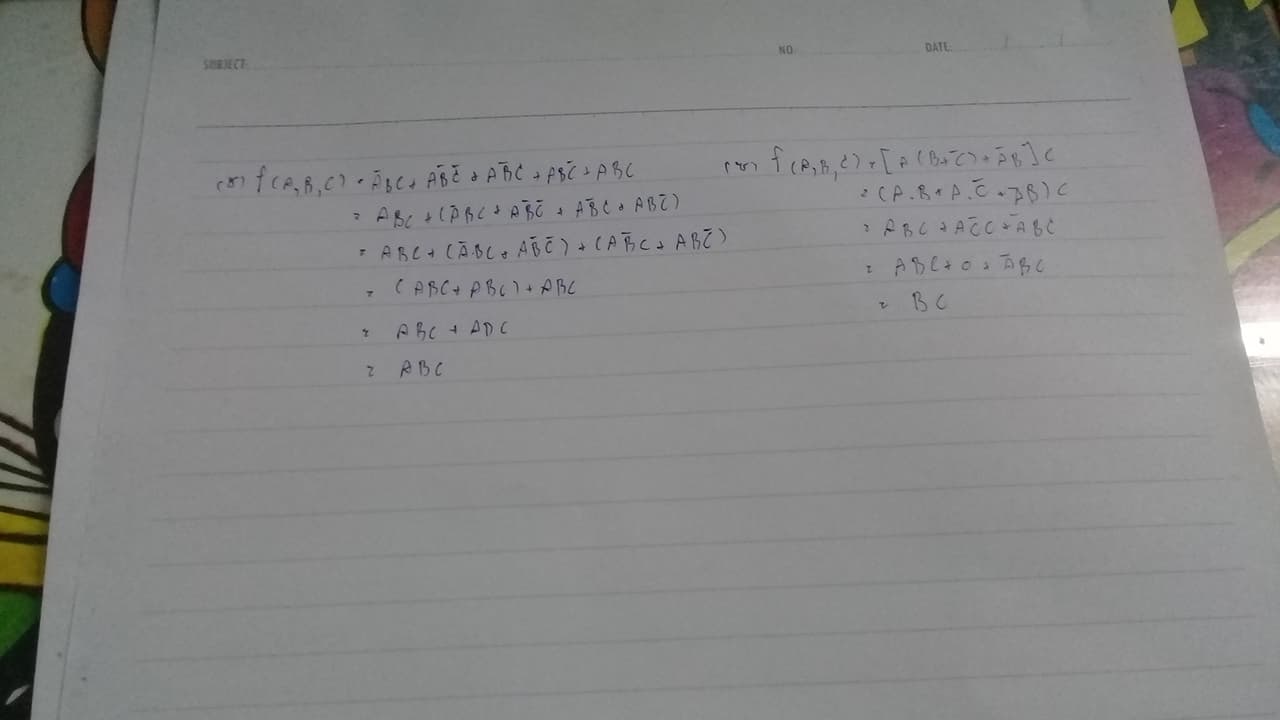 SUBJECT: NO: DATE: / /
f(A,B,C) = A̅BC + AB̅C̅ + AB̅C + ABC̅ + ABC
= ABC + (A̅BC + AB̅C̅ + AB̅C + ABC̅)
= ABC + (A̅BC + AB̅C̅) + (AB̅C + ABC̅)
= (ABC + ABC) + ABC
= ABC + ABC
= ABC
f(A,B,C) = [A(B+C̅) + A̅B]C
= (A.B + A.C̅ + A̅B)C
= ABC + AC̅C + A̅BC
= ABC + 0 + A̅BC
= BC